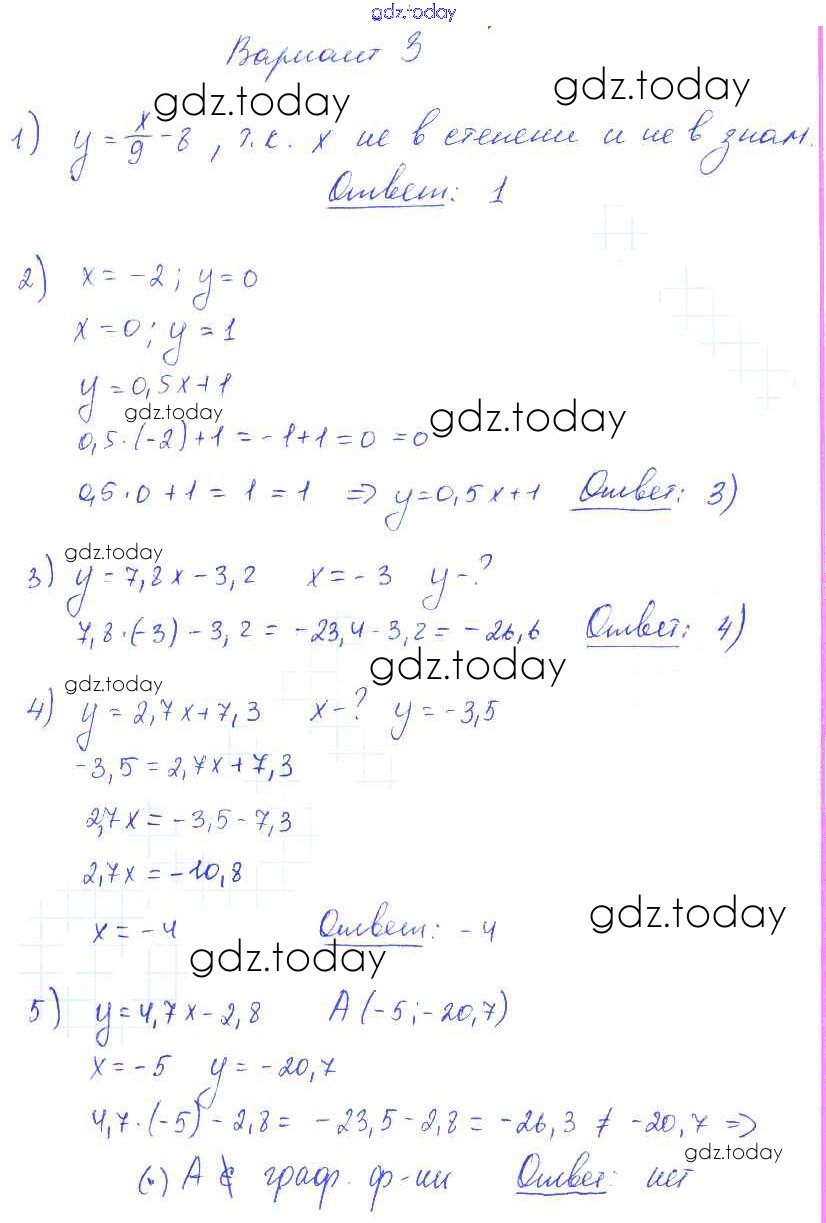 gdz.today
Вариант 3
gdz.today gdz.today
1) y = x/9 - 8, т.к. x не в степени и не в знам.
Ответ: 1
2) x = -2; y = 0
x = 0; y = 1
y = 0,5x+1
gdz.today gdz.today
0,5·(-2)+1 = -1+1 = 0 = 0
0,5·0+1 = 1 = 1 => y = 0,5x+1 Ответ: 3)
gdz.today
3) y = 7,8x - 3,2 x = -3 y - ?
7,8·(-3) - 3,2 = -23,4 - 3,2 = -26,6 Ответ: 4)
gdz.today
gdz.today
4) y = 2,7x+7,3 x - ? y = -3,5
-3,5 = 2,7x+7,3
2,7x = -3,5 - 7,3
2,7x = -10,8
gdz.today
x = -4 Ответ: -4
gdz.today
5) y = 4,7x - 2,8 A (-5; -20,7)
x = -5 y = -20,7
4,7·(-5) - 2,8 = -23,5 - 2,8 = -26,3 ≠ -20,7 =>
gdz.today
(·) A ∉ граф. ф-ии Ответ: нет